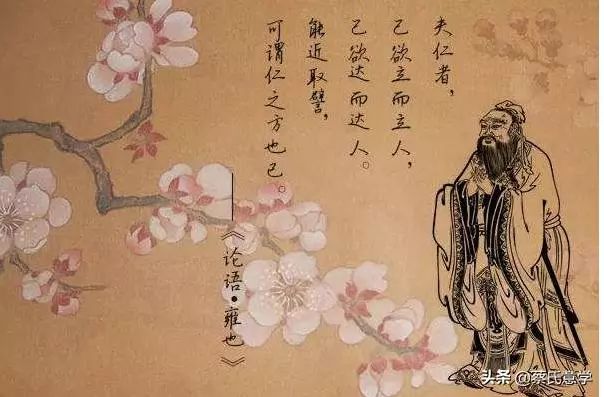 夫仁者，
己欲立而立人，
己欲达而达人。
能近取譬，
可谓仁之方也已。
——《论语·雍也》
头条 @蔡氏意学